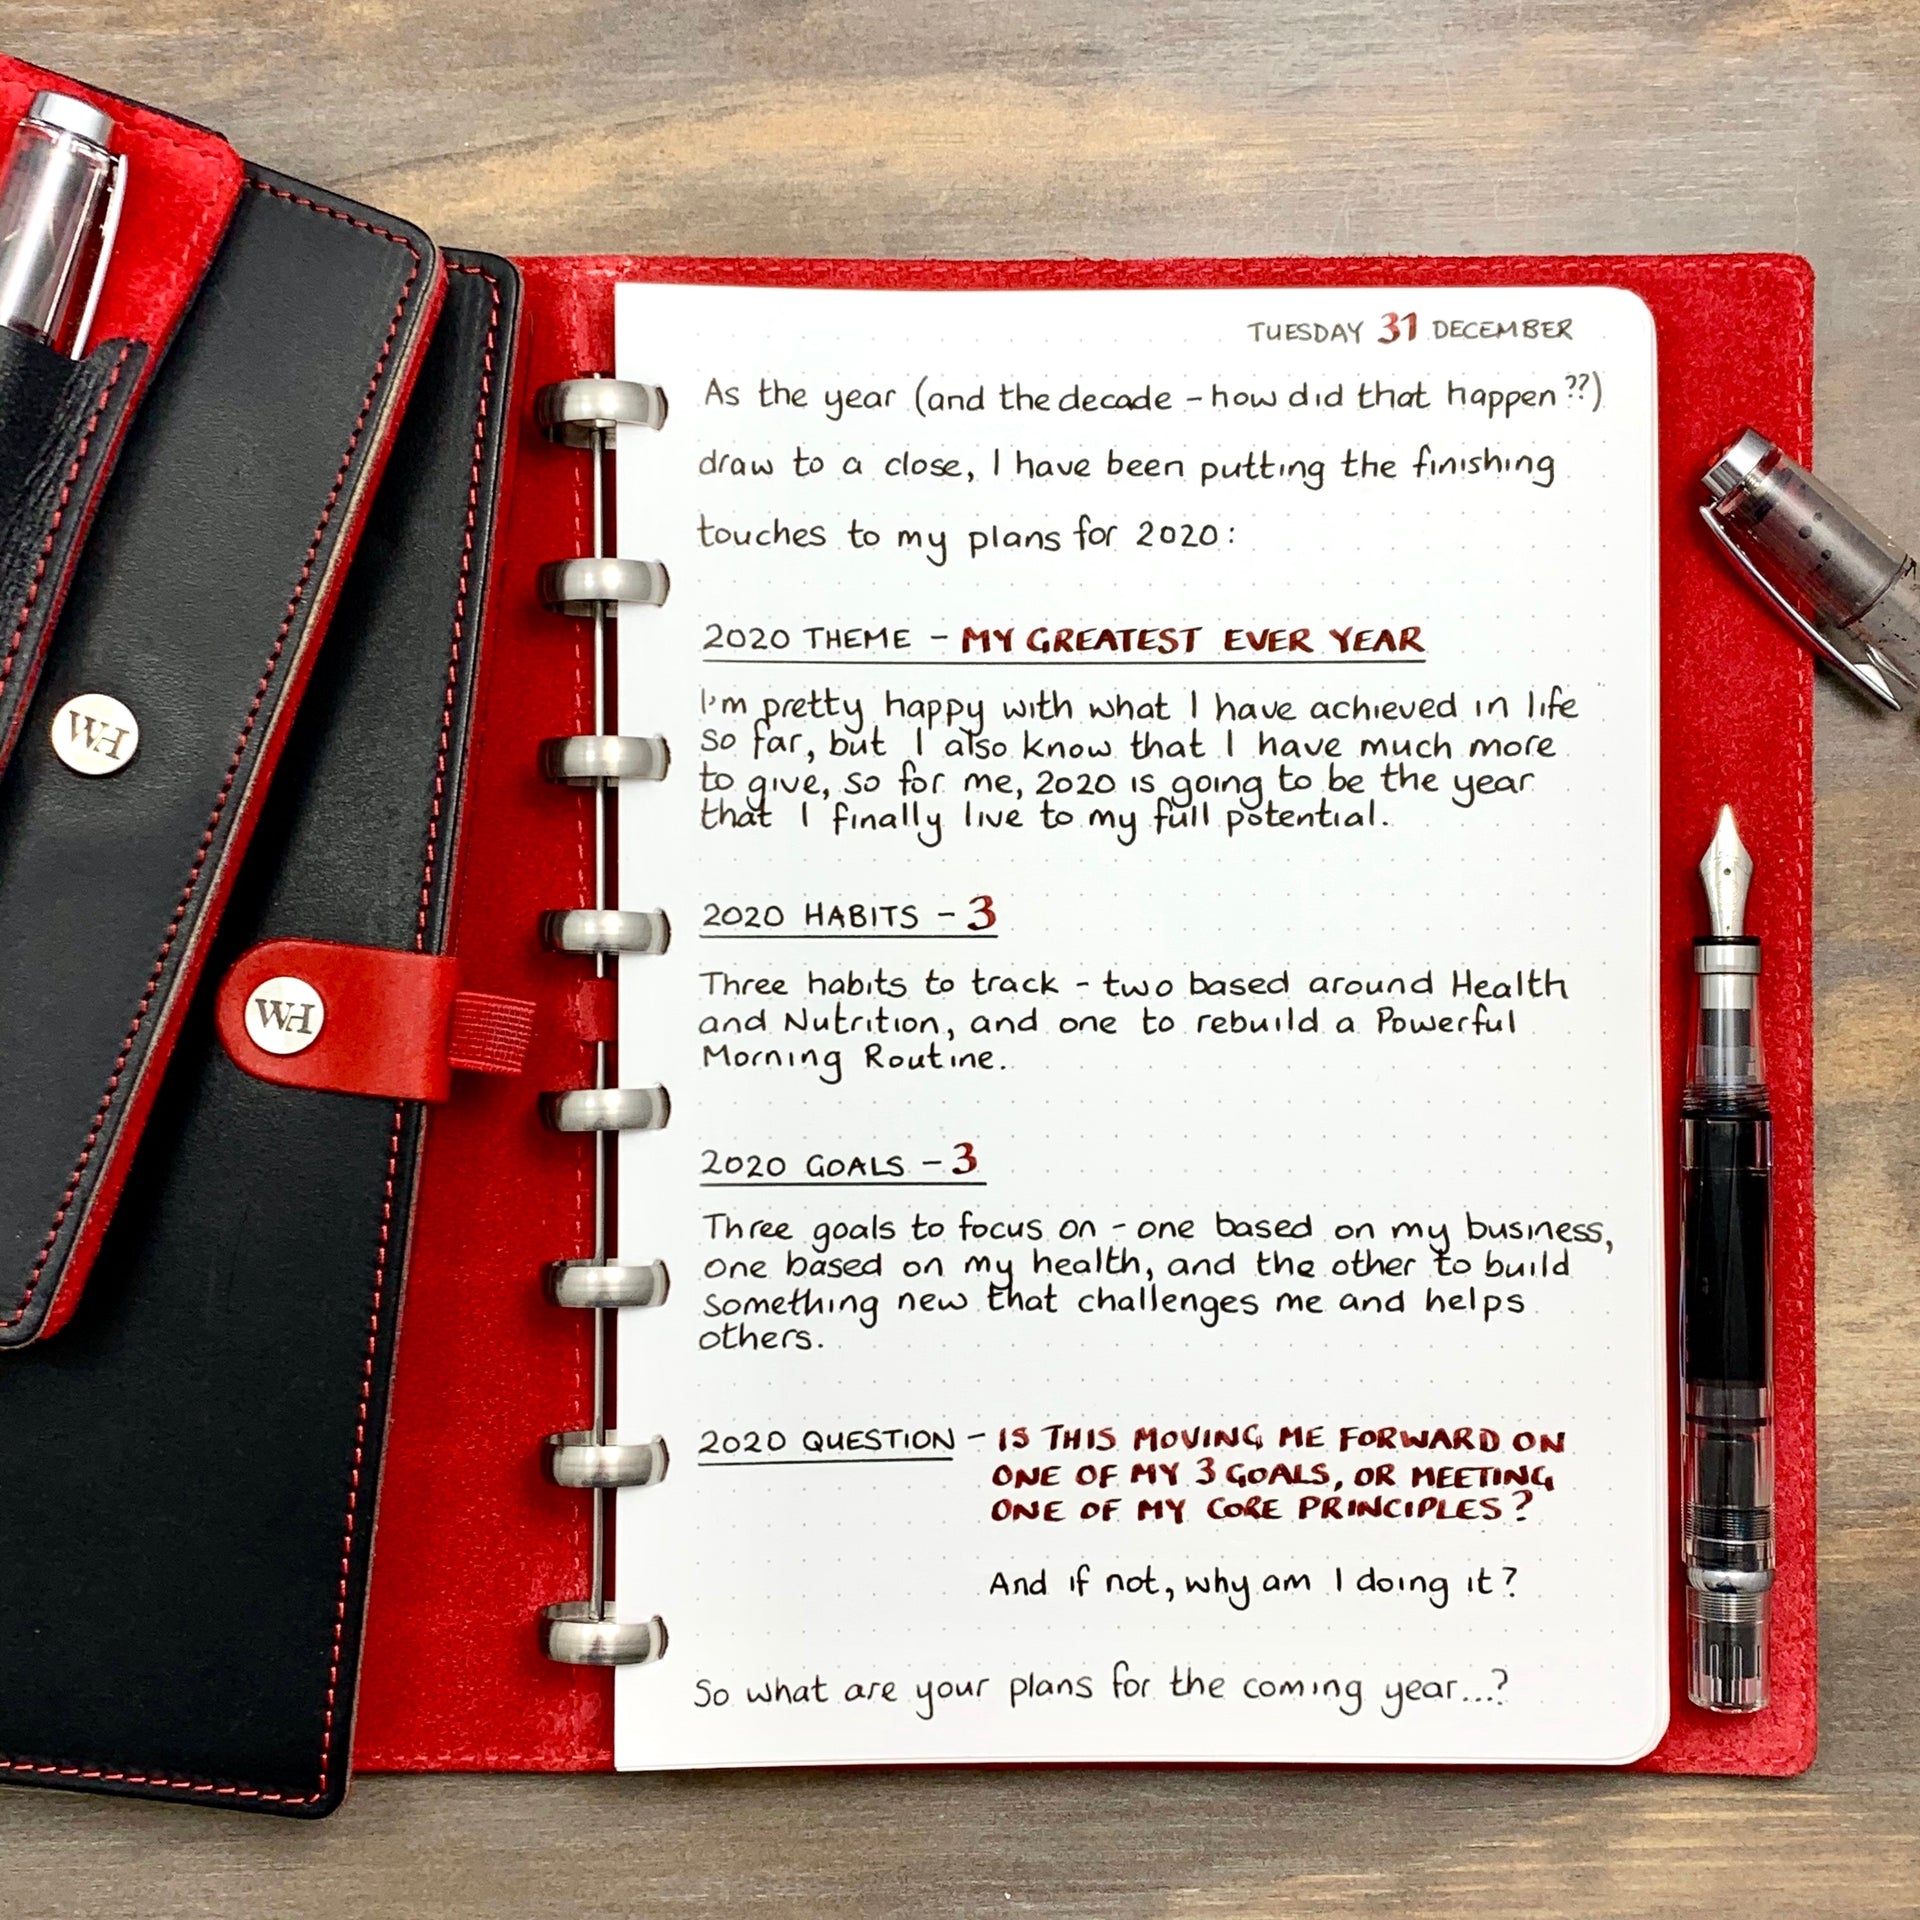 TUESDAY 31 DECEMBER
As the year (and the decade - how did that happen??)
draw to a close, I have been putting the finishing
touches to my plans for 2020:
2020 THEME - MY GREATEST EVER YEAR
I'm pretty happy with what I have achieved in life
so far, but I also know that I have much more
to give, so for me, 2020 is going to be the year
that I finally live to my full potential.
2020 HABITS - 3
Three habits to track - two based around Health
and Nutrition, and one to rebuild a Powerful
Morning Routine.
2020 GOALS - 3
Three goals to focus on - one based on my business,
one based on my health, and the other to build
something new that challenges me and helps
others.
2020 QUESTION - IS THIS MOVING ME FORWARD ON
ONE OF MY 3 GOALS, OR MEETING
ONE OF MY CORE PRINCIPLES?
And if not, why am I doing it?
So what are your plans for the coming year...?
WH
WH